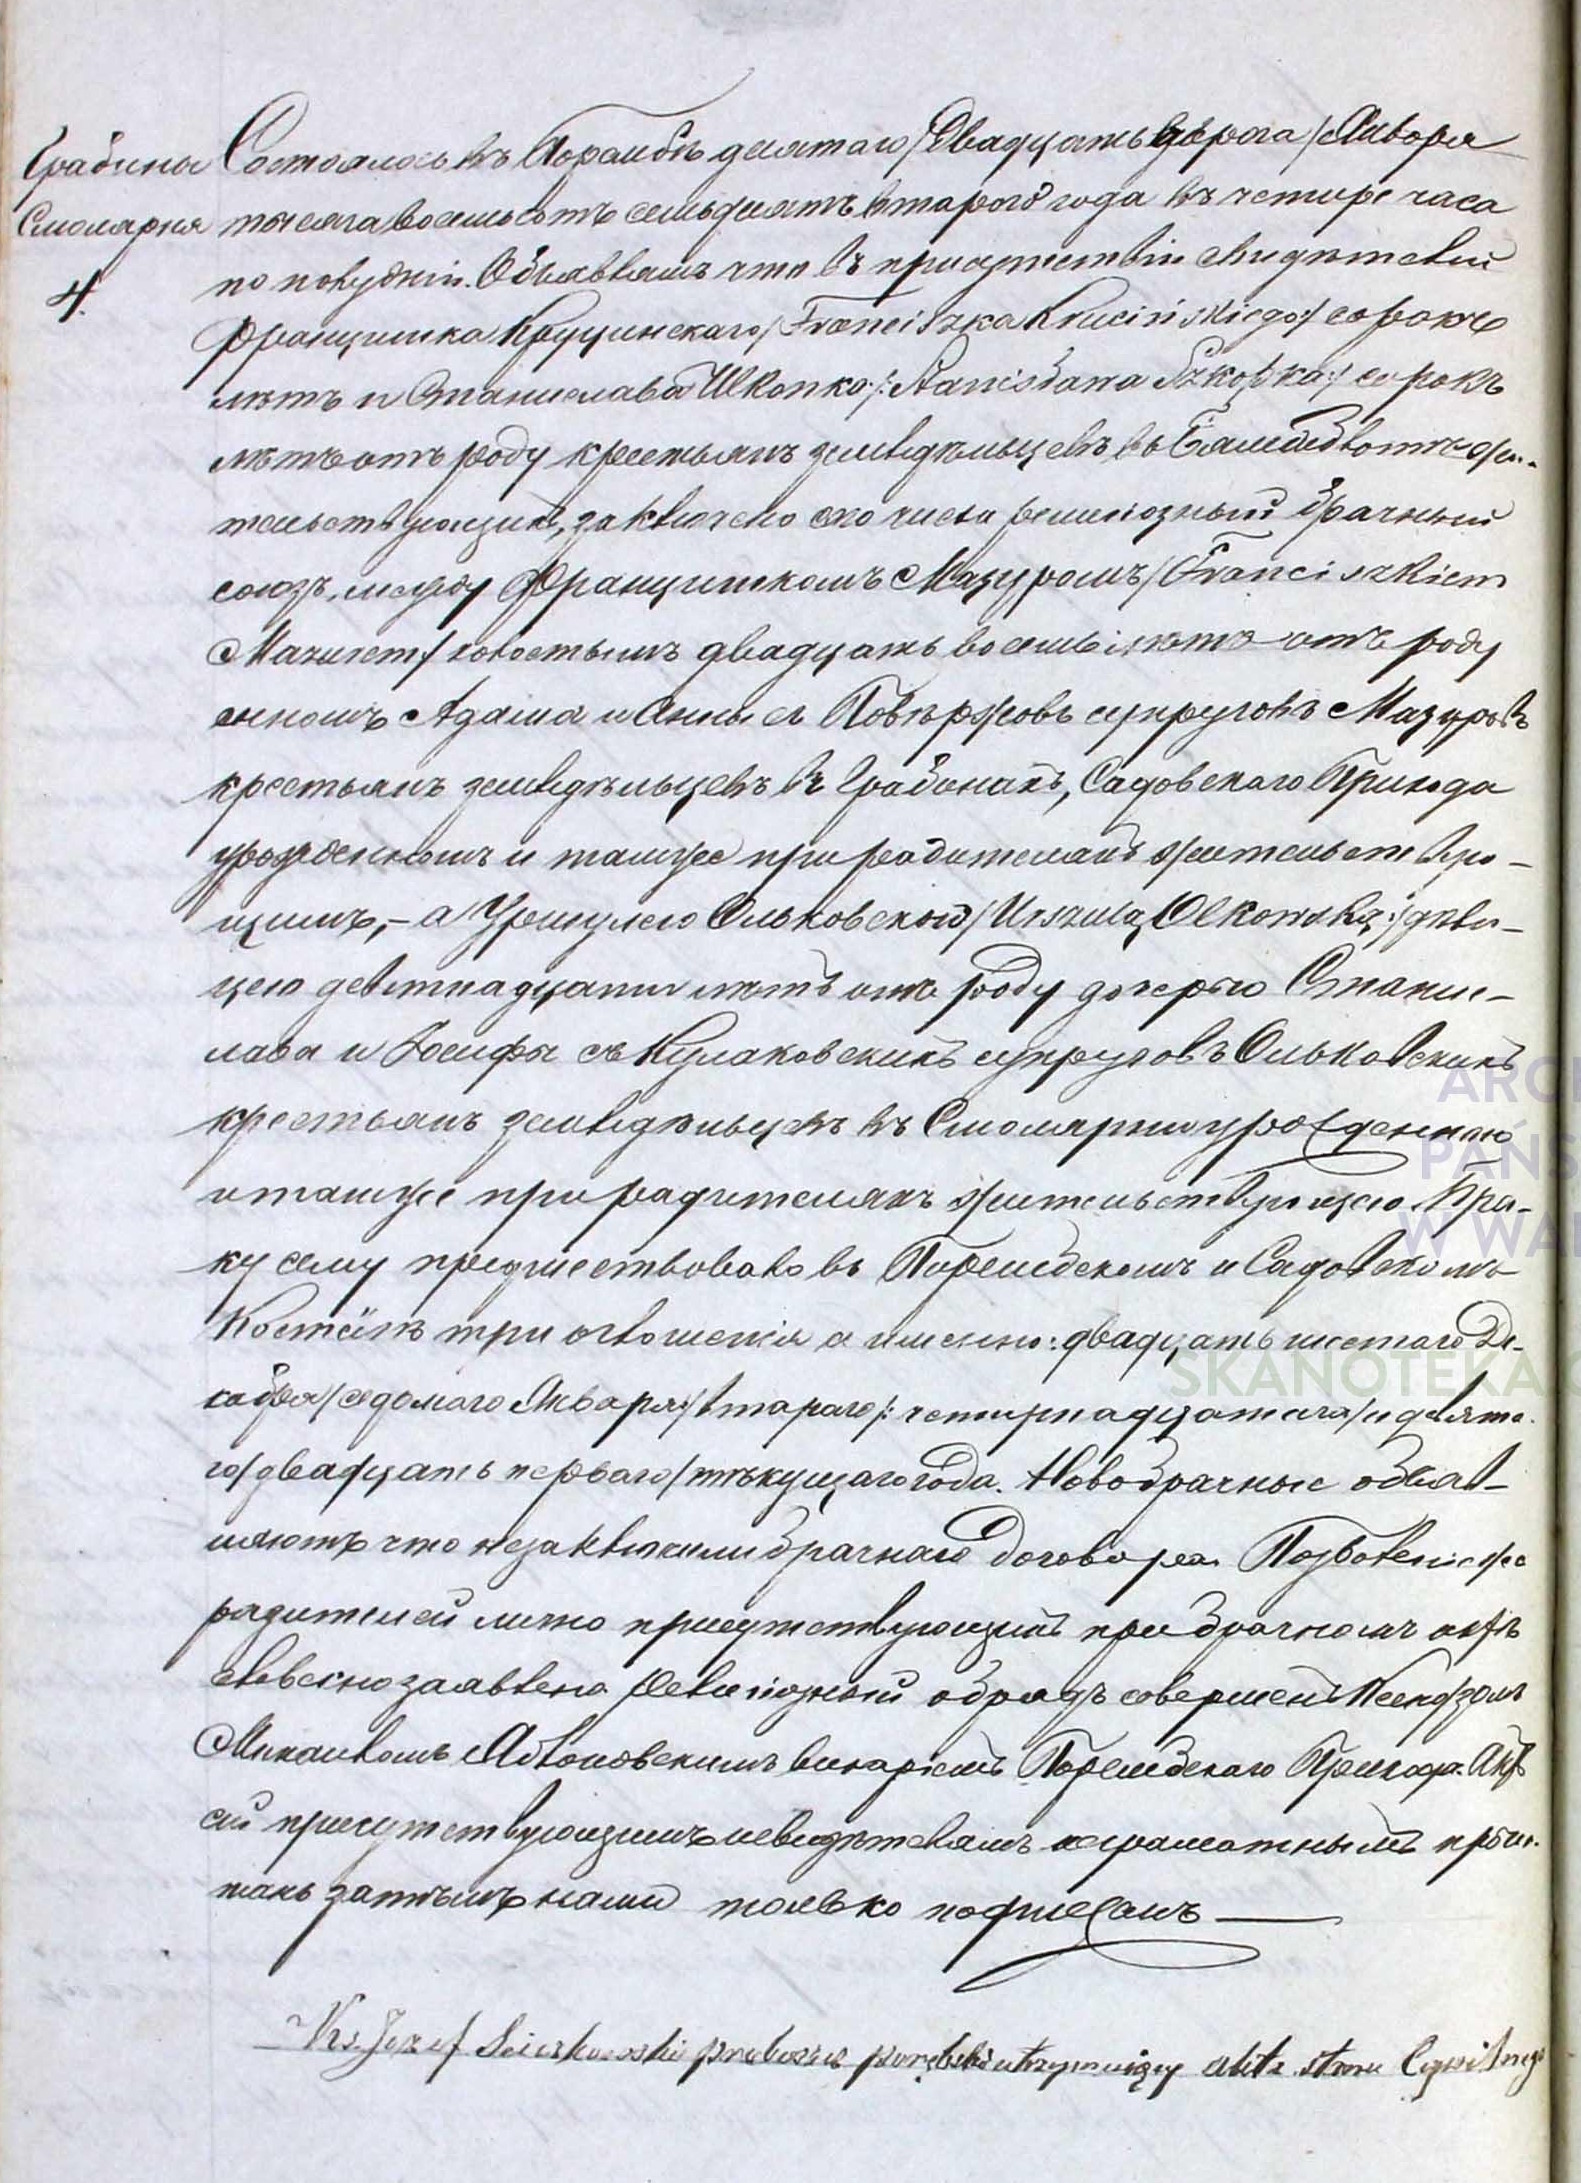 Грабины Состоялось въ Порембѣ десятаго/двадцать втораго/Января
Смолярня тысяча восемьсотъ семьдесятъ втораго года въ четыре часа
4. по полудни. Объявляемъ что въ присутствіи свидѣтелей
Францишка Круцинскаго/Franciszka Krucińskiego/ сорокъ
лѣтъ и Станислава Шкопка/:Stanisława Szkopka:/ сорокъ
лѣтъ отъ роду крестьянъ земледѣльцевъ въ жи-
тельствующихъ, заключено сего числа религіозный брачный
союзъ, между Францишкомъ Мазуромъ/Franciszkiem
Mazurem/ холостымъ двадцать восемь лѣтъ отъ роду
сыномъ Адама и Анны съ супруговъ Мазуровъ
крестьянъ земледѣльцевъ въ Грабинахъ, Садовскаго Прихода
урожденнымъ и тамже при родителахъ жительству-
ющимъ, - а Уршулею Ольковскою/Urszulą Olkowską:/ дѣви-
цею девятнадцати лѣтъ отъ роду дочерью Станис-
лава и Іосифы съ Кулаковскихъ супруговъ Ольковскихъ
крестьянъ земледѣльцевъ въ Смолярни урожденною
и тамже при родителяхъ жительствующею. Бра-
ку сему предшествовало въ Порембскомъ и Садовскомъ
Костёлѣ три оглошенія а именно: двадцать шестаго Де-
кабря/седмаго Января:/втораго/:четырнадцатаго/и девята-
го/двадцать перваго/тѣкущаго года. Новобрачные объяв-
ляютъ что незаключили брачнаго договора. Позволеніе же
родителей лично присутствующихъ при брачномъ актѣ
словесно заявлено Религіозный обрядъ совершенъ Ксендзомъ
Михаиломъ викаріемъ Порембскаго Прихода. Актъ
сей присутствующимъ и свидѣтелямъ неграмотнымъ прочи-
танъ затѣмъ нами только подписанъ
Ks. Józef proboszcz porębski utrzymujący akta stanu Cywilnego